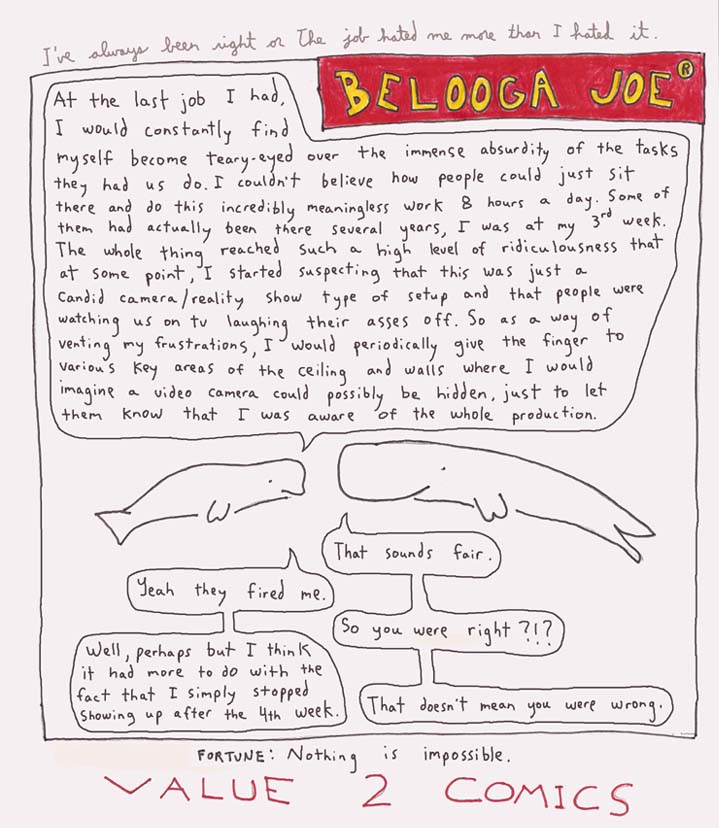 I've always been right or The job hated me more than I hated it.
BELOOGA JOE®
At the last job I had,
I would constantly find
myself become teary-eyed over the immense absurdity of the tasks
they had us do. I couldn't believe how people could just sit
there and do this incredibly meaningless work 8 hours a day. Some of
them had actually been there several years, I was at my 3rd week.
The whole thing reached such a high level of ridiculousness that
at some point, I started suspecting that this was just a
candid camera/reality show type of setup and that people were
watching us on tv laughing their asses off. So as a way of
venting my frustrations, I would periodically give the finger to
various key areas of the ceiling and walls where I would
imagine a video camera could possibly be hidden, just to let
them know that I was aware of the whole production.
That sounds fair.
Yeah they fired me.
So you were right ?!?
Well, perhaps but I think
it had more to do with the
fact that I simply stopped
showing up after the 4th week.
That doesn't mean you were wrong.
FORTUNE: Nothing is impossible.
VALUE 2 COMICS